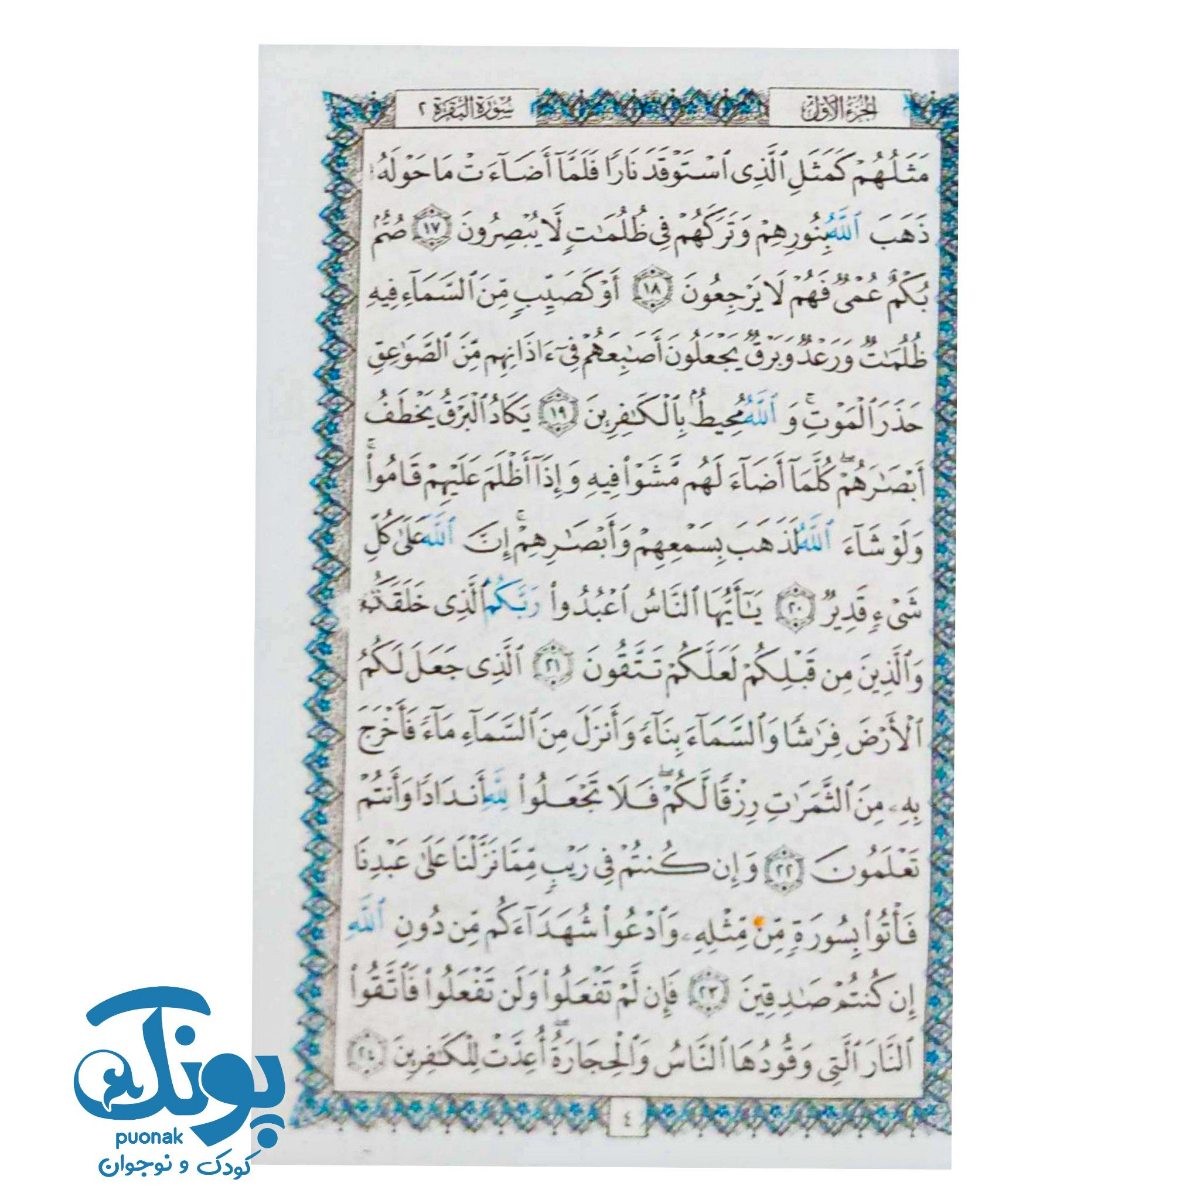 الجزء الأول
سورة البقرة ٢
مَثَلُهُمْ كَمَثَلِ ٱلَّذِى ٱسْتَوْقَدَ نَارًا فَلَمَّآ أَضَآءَتْ مَا حَوْلَهُۥ
ذَهَبَ ٱللَّهُ بِنُورِهِمْ وَتَرَكَهُمْ فِى ظُلُمَٰتٍ لَّا يُبْصِرُونَ ١٧ صُمٌّۢ
بُكْمٌ عُمْىٌ فَهُمْ لَا يَرْجِعُونَ ١٨ أَوْ كَصَيِّبٍ مِّنَ ٱلسَّمَآءِ فِيهِ
ظُلُمَٰتٌ وَرَعْدٌ وَبَرْقٌ يَجْعَلُونَ أَصَٰبِعَهُمْ فِىٓ ءَاذَانِهِم مِّنَ ٱلصَّوَٰعِقِ
حَذَرَ ٱلْمَوْتِ ۚ وَ ٱللَّهُ مُحِيطٌۢ بِٱلْكَٰفِرِينَ ١٩ يَكَادُ ٱلْبَرْقُ يَخْطَفُ
أَبْصَٰرَهُمْ ۖ كُلَّمَآ أَضَآءَ لَهُم مَّشَوْا۟ فِيهِ وَإِذَآ أَظْلَمَ عَلَيْهِمْ قَامُوا۟ ۚ
وَلَوْ شَآءَ ٱللَّهُ لَذَهَبَ بِسَمْعِهِمْ وَأَبْصَٰرِهِمْ ۚ إِنَّ ٱللَّهَ عَلَىٰ كُلِّ
شَىْءٍ قَدِيرٌ ٢٠ يَٰٓأَيُّهَا ٱلنَّاسُ ٱعْبُدُوا۟ رَبَّكُمُ ٱلَّذِى خَلَقَكُمْ
وَٱلَّذِينَ مِن قَبْلِكُمْ لَعَلَّكُمْ تَتَّقُونَ ٢١ ٱلَّذِى جَعَلَ لَكُمُ
ٱلْأَرْضَ فِرَٰشًا وَٱلسَّمَآءَ بِنَآءً وَأَنزَلَ مِنَ ٱلسَّمَآءِ مَآءً فَأَخْرَجَ
بِهِۦ مِنَ ٱلثَّمَرَٰتِ رِزْقًا لَّكُمْ ۖ فَلَا تَجْعَلُوا۟ لِلَّهِ أَندَادًا وَأَنتُمْ
تَعْلَمُونَ ٢٢ وَإِن كُنتُمْ فِى رَيْبٍ مِّمَّا نَزَّلْنَا عَلَىٰ عَبْدِنَا
فَأْتُوا۟ بِسُورَةٍ مِّن مِّثْلِهِۦ وَٱدْعُوا۟ شُهَدَآءَكُم مِّن دُونِ ٱللَّهِ
إِن كُنتُمْ صَٰدِقِينَ ٢٣ فَإِن لَّمْ تَفْعَلُوا۟ وَلَن تَفْعَلُوا۟ فَٱتَّقُوا۟
ٱلنَّارَ ٱلَّتِى وَقُودُهَا ٱلنَّاسُ وَٱلْحِجَارَةُ ۖ أُعِدَّتْ لِلْكَٰفِرِينَ ٢٤
٤
پونک
puonak
کودک و نوجوان